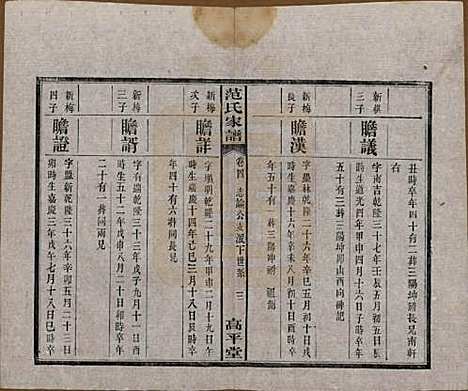 丑時卒年四十有二葬三陽坤諸長兄南軒
右
新棋
三子
瞻議
字南吉乾隆三十七年壬辰五月初一日酉
時生道光四年甲申四月十六日子時卒年
五十有三葬三陽坤卯山酉向碑記
新梅
長子
瞻漢
字墨林乾隆二十六年辛巳五月初十日戌
時生嘉慶十六年辛未八月初十日酉時卒
年五十有一葬三陽坤祠
范氏家譜
卷四
志綸公支派下世系
三
高平堂
新梅
次子
瞻詳
字明乾隆二十九年甲申一月十九日午
時生嘉慶十四年己巳三月十八日辰時卒
年四十有六葬同長兄
新梅
三子
瞻謂
字有端乾隆三十三年戊子九月初一日
時生五十二年戊申八月二十日和時卒年
二十有一葬同兩兄
新梅
四子
瞻證
字盛新乾隆三十六年辛卯五月二十三日
時生嘉慶三年戊午七月十八日亥時卒年